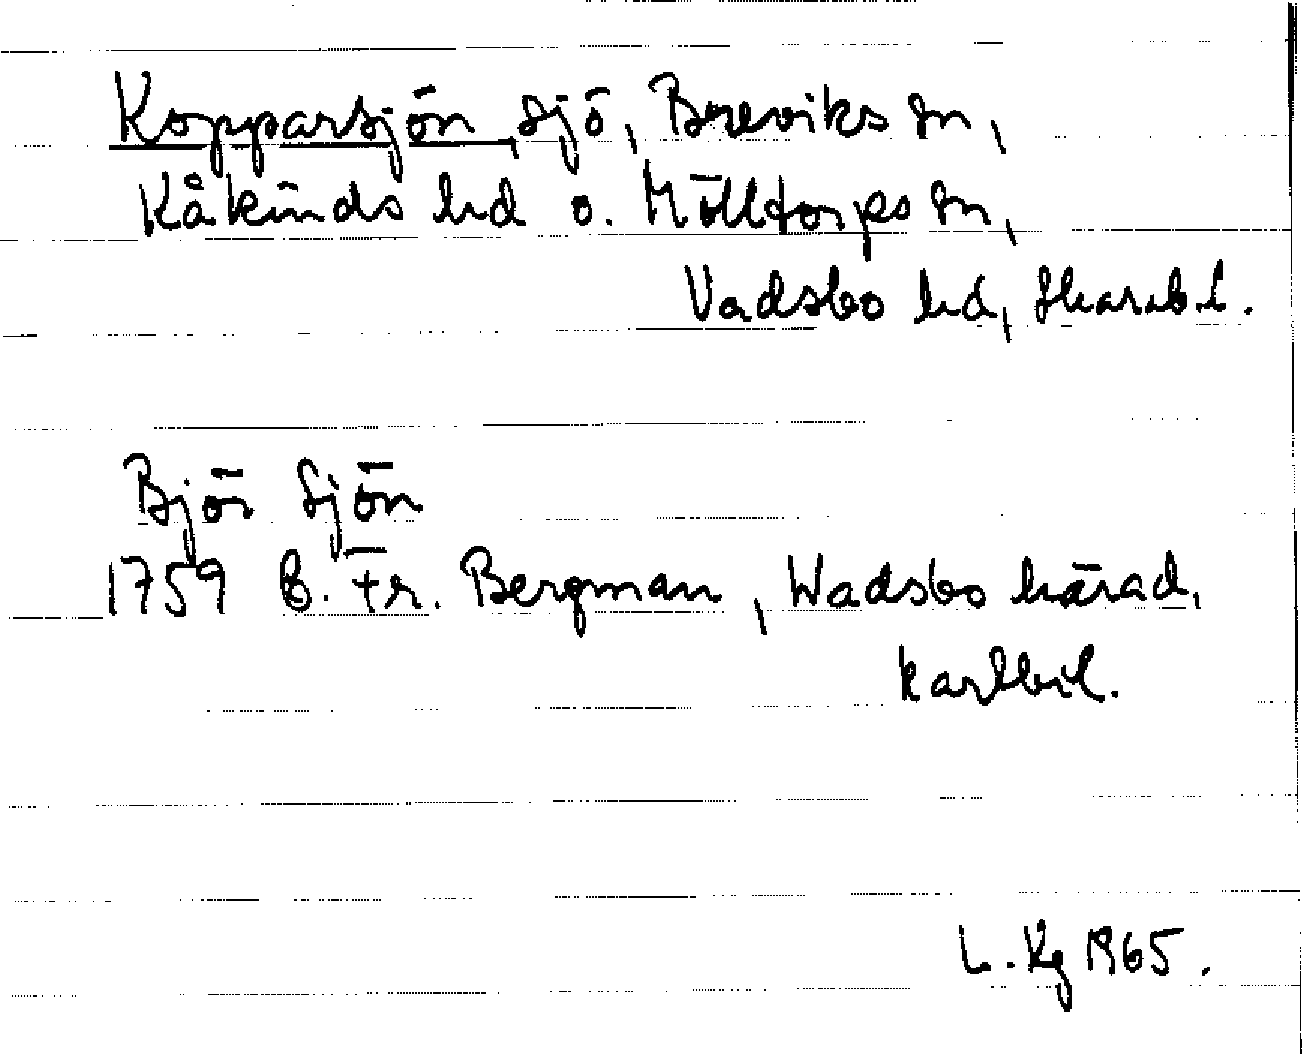 Kopparsjön, sjö, Breviks sn,
Kåkinds hd o. Mölltorps sn,
Vadsbo hd, Skarab.l.
Björ Sjön
1759 B. Fr. Bergman, Wadsbo härad,
kartbil.
L. Kg 1965.